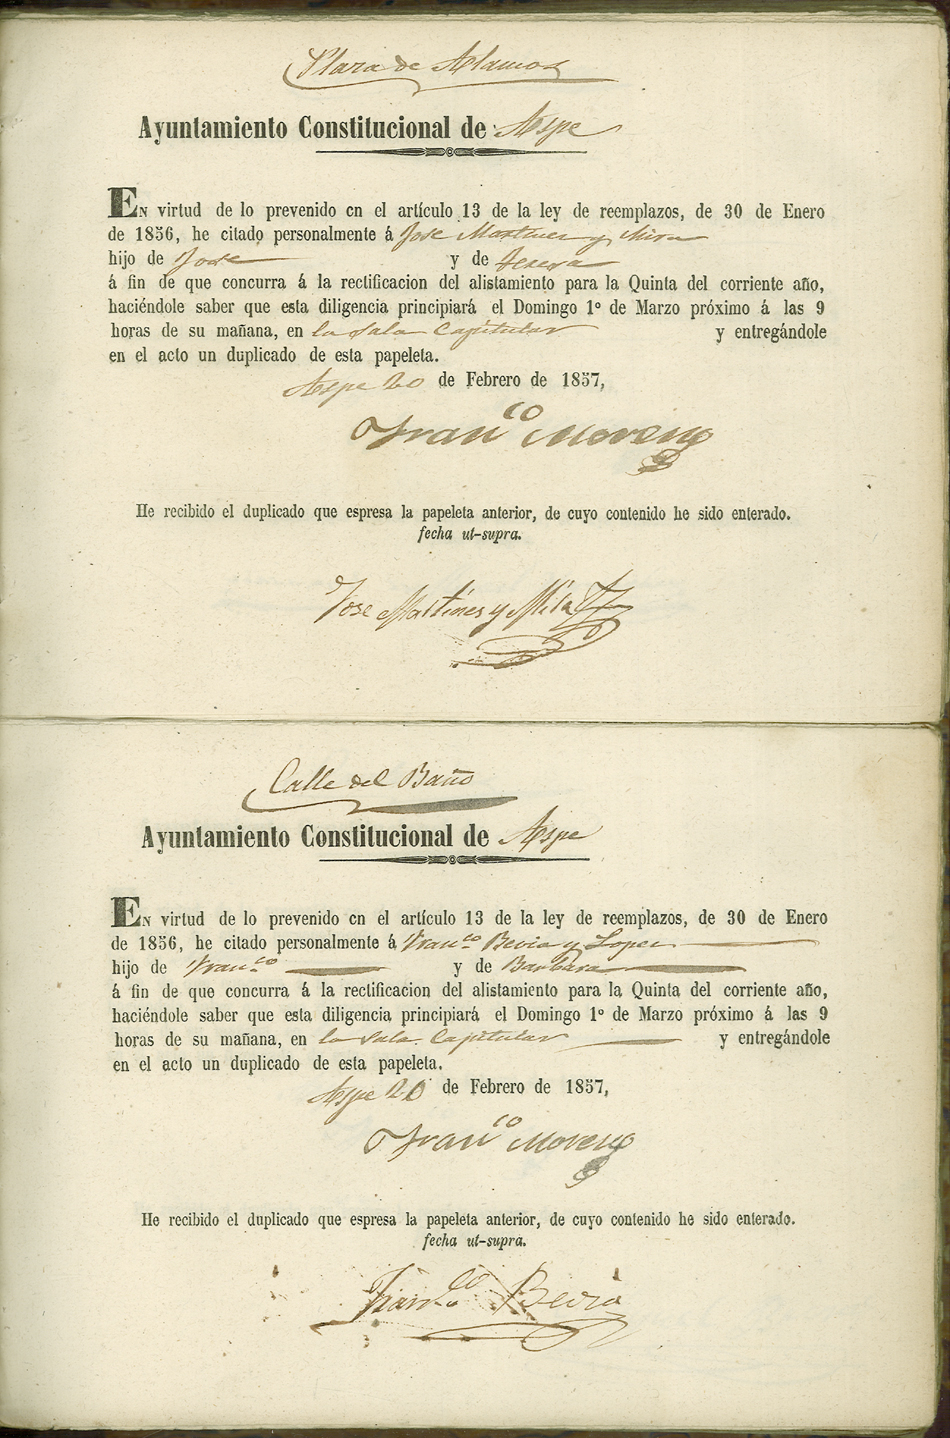 Plaza de Alamos
Ayuntamiento Constitucional de Aspe
EN virtud de lo prevenido en el artículo 13 de la ley de reemplazos, de 30 de Enero
de 1856, he citado personalmente á Jose Martinez y Mira
hijo de Jose y de Teresa
á fin de que concurra á la rectificacion del alistamiento para la Quinta del corriente año,
haciéndole saber que esta diligencia principiará el Domingo 1º de Marzo próximo á las 9
horas de su mañana, en la Sala Capitular y entregándole
en el acto un duplicado de esta papeleta.
Aspe 20 de Febrero de 1857,
Franco Moreno
He recibido el duplicado que espresa la papeleta anterior, de cuyo contenido he sido enterado.
fecha ut-supra.
Jose Martines y Mira
Calle del Baño
Ayuntamiento Constitucional de Aspe
EN virtud de lo prevenido en el artículo 13 de la ley de reemplazos, de 30 de Enero
de 1856, he citado personalmente á Franco Bevia y Lopez
hijo de Franco y de Barbara
á fin de que concurra á la rectificacion del alistamiento para la Quinta del corriente año,
haciéndole saber que esta diligencia principiará el Domingo 1º de Marzo próximo á las 9
horas de su mañana, en la Sala Capitular y entregándole
en el acto un duplicado de esta papeleta.
Aspe 20 de Febrero de 1857,
Franco Moreno
He recibido el duplicado que espresa la papeleta anterior, de cuyo contenido he sido enterado.
fecha ut-supra.
Franco Bevia